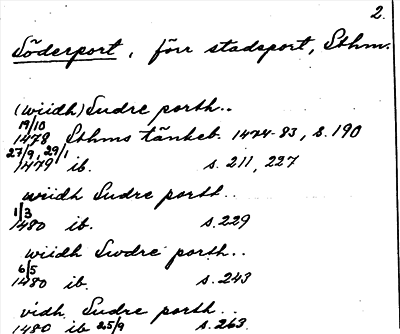 2.
Söderport, förr stadsport, Sthm.
(wiidh) Sudre porth..
19/10
1478 Sthms tänkeb. 1474-83, s. 190
27/9, 29/1
1479 ib. s. 211, 227
wiidh Sudre porth..
1/3
1480 ib. s. 229
wiidh Swdre porth..
6/5
1480 ib. s. 243
vidh Sudre porth..
1480 ib 25/9 s. 263.